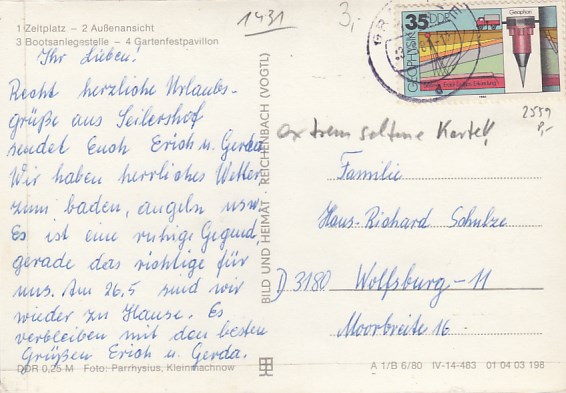 1431
3,-
1 Zeltplatz – 2 Außenansicht
3 Bootsanlegestelle – 4 Gartenfestpavillon
Ihr Lieben!
Recht herzliche Urlaubs-
grüße aus Seilershof
sendet Euch Erich u. Gerda.
Wir haben herrliches Wetter
zum baden, angeln usw.
Es ist eine ruhige Gegend,
gerade das richtige für
uns. Am 26,5 sind wir
wieder zu Hause. Es
verbleiben mit den besten
Grüßen Erich u. Gerda.
DDR 0,25 M Foto: Parrhysius, Kleinmachnow
BILD UND HEIMAT · REICHENBACH (VOGTL)
35 DDR
GEOPHYSIK
Geophon
2559
extrem seltene Karte!!
Familie
Hans-Richard Schulze
D 3180 Wolfsburg-11
Moorbreite 16
A 1/B 6/80 IV-14-483 01 04 03 198